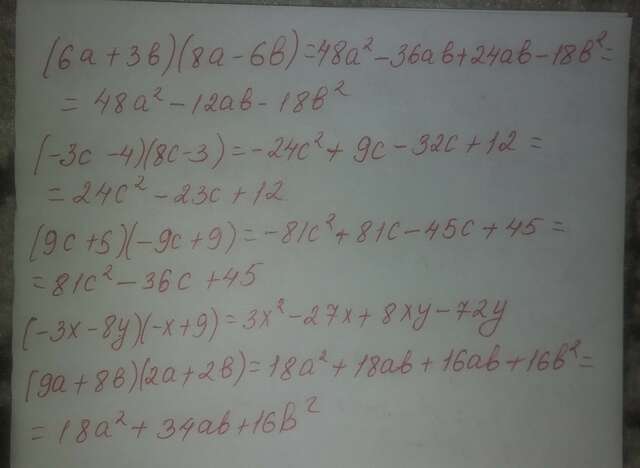 (6a+3b)(8a-6b)=48a²-36ab+24ab-18b²=
=48a²-12ab-18b²
(-3c-4)(8c-3)=-24c²+9c-32c+12=
=24c²-23c+12
(9c+5)(-9c+9)=-81c²+81c-45c+45=
=81c²-36c+45
(-3x-8y)(-x+9)=3x²-27x+8xy-72y
(9a+8b)(2a+2b)=18a²+18ab+16ab+16b²=
=18a²+34ab+16b²